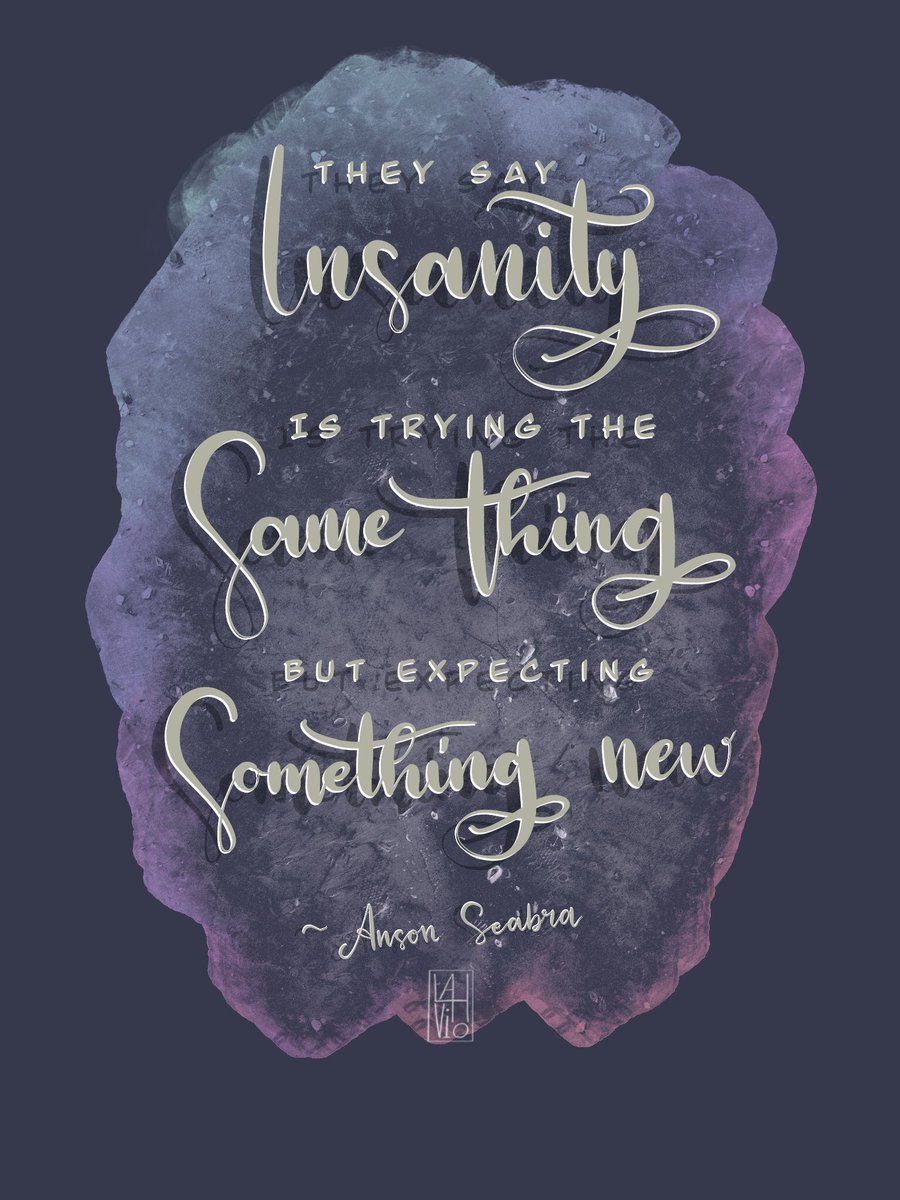 THEY SAY
Insanity
IS TRYING THE
Same thing
BUT EXPECTING
Something new
~ Anson Seabra